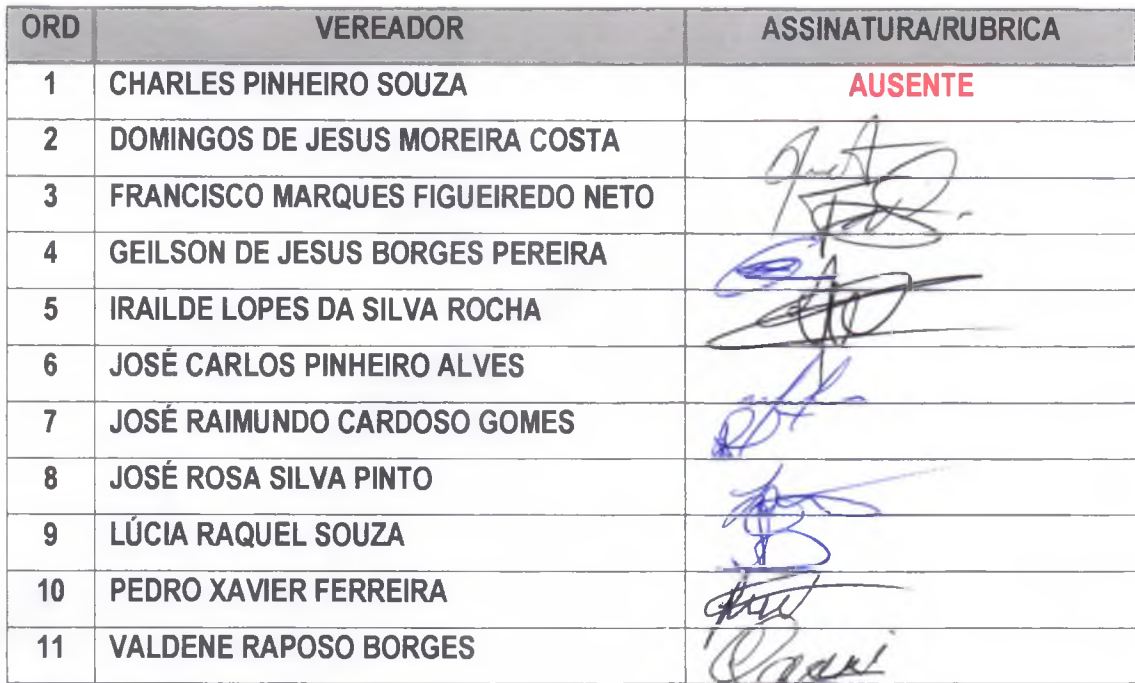 ORD VEREADOR ASSINATURA/RUBRICA
1 CHARLES PINHEIRO SOUZA AUSENTE
2 DOMINGOS DE JESUS MOREIRA COSTA
3 FRANCISCO MARQUES FIGUEIREDO NETO
4 GEILSON DE JESUS BORGES PEREIRA
5 IRAILDE LOPES DA SILVA ROCHA
6 JOSÉ CARLOS PINHEIRO ALVES
7 JOSÉ RAIMUNDO CARDOSO GOMES
8 JOSÉ ROSA SILVA PINTO
9 LÚCIA RAQUEL SOUZA
10 PEDRO XAVIER FERREIRA
11 VALDENE RAPOSO BORGES